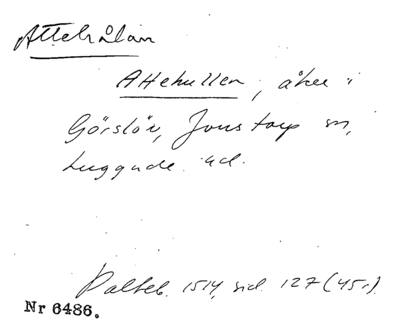 Attehålan
Attehullen, åker i
Görslöv, Jonstorp sn,
Luggude hd.
Palteb. 1514, sid. 127 (45r).
Nr 6486.